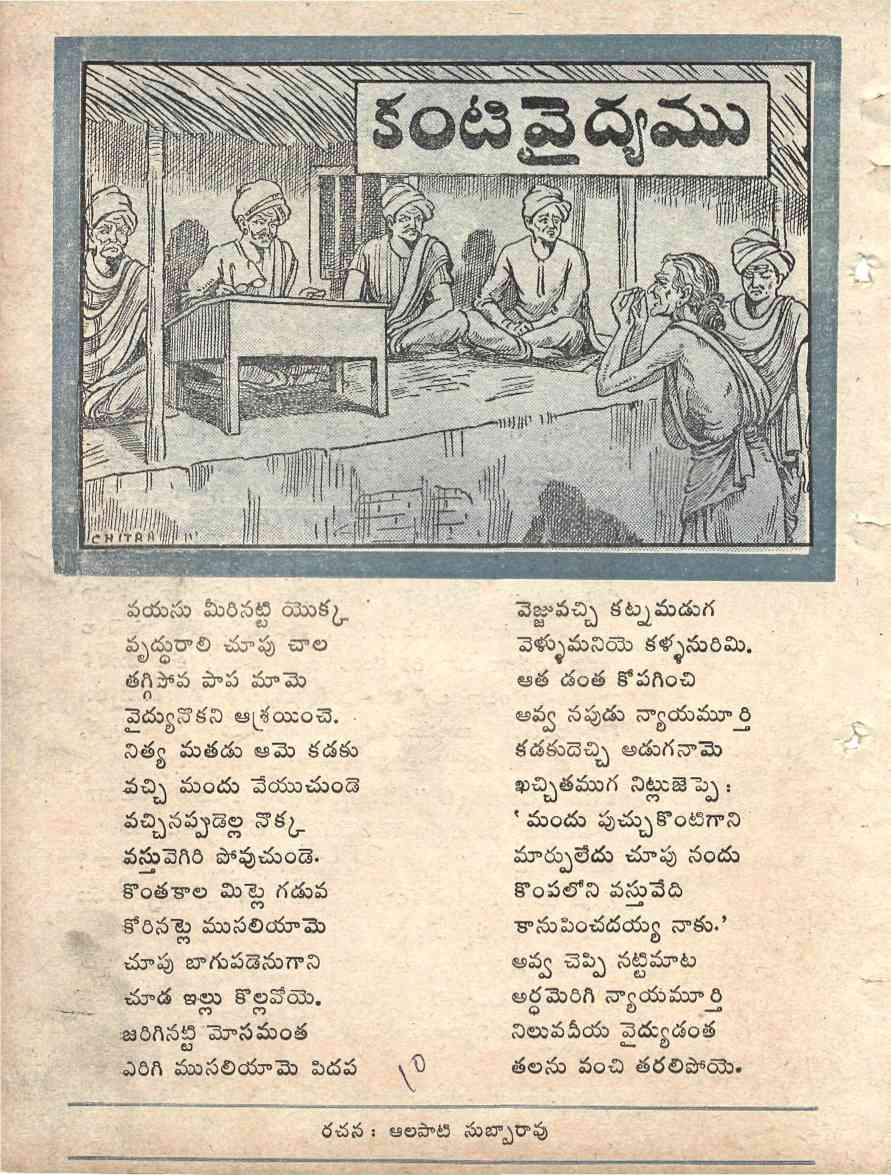 కంటి వైద్యము
CHITRA
వయసు మీరినట్టి యొక్క
వృద్ధురాలి చూపు చాల
తగ్గిపోవ పాప మామె
వైద్యునొకని ఆశ్రయించె.
నిత్య మతడు ఆమె కడకు
వచ్చి మందు వేయుచుండె
వచ్చినప్పుడెల్ల నొక్క
వస్తువెగిరి పోవుచుండె.
కొంతకాల మిట్లె గడువ
కోరినట్లె ముసలియామె
చూపు బాగుపడెనుగాని
చూడ ఇల్లు కొల్లవోయె.
జరిగినట్టి మోసమంత
ఎరిగి ముసలియామె పిదప
వెజ్జువచ్చి కట్నమడుగ
వెళ్ళుమనియె కళ్ళనురిమి.
ఆత డంత కోపగించి
అవ్వ నపుడు న్యాయమూర్తి
కడకుదెచ్చి అడుగనామె
ఖచ్చితముగ నిట్లుజెప్పె :
'మందు పుచ్చుకొంటిగాని
మార్పులేదు చూపు నందు
కొంపలోని వస్తువేది
కానుపించదయ్య నాకు.'
అవ్వ చెప్పి నట్టిమాట
అర్ధమెరిగి న్యాయమూర్తి
నిలువనీయ వైద్యుడంత
తలను వంచి తరలిపోయె.
10
రచన : ఆలపాటి సుబ్బారావు